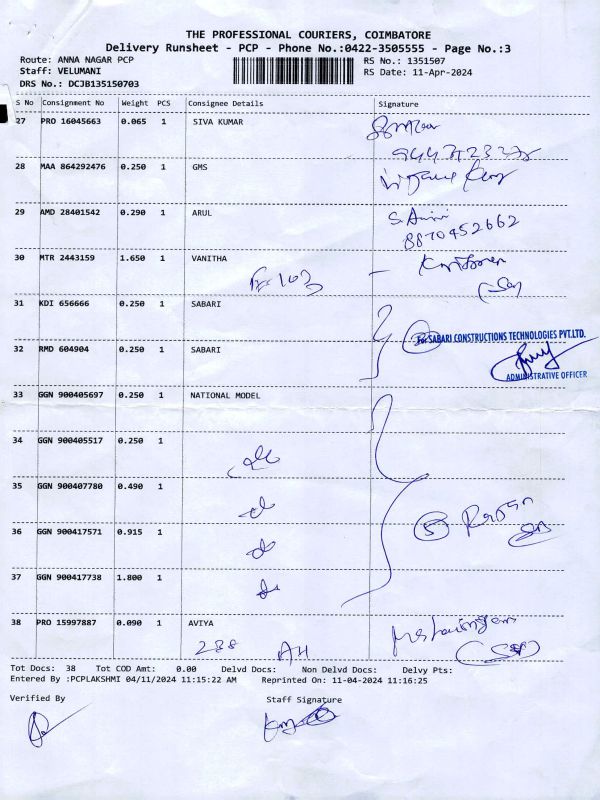 THE PROFESSIONAL COURIERS, COIMBATORE
Delivery Runsheet - PCP - Phone No.:0422-3505555 - Page No.:3
Route: ANNA NAGAR PCP RS No.: 1351507
Staff: VELUMANI RS Date: 11-Apr-2024
DRS No.: DCJB135150703
S No Consignment No Weight PCS Consignee Details Signature
27 PRO 16045663 0.065 1 SIVA KUMAR
28 MAA 864292476 0.250 1 GMS
29 AMD 28401542 0.290 1 ARUL
8870452662
30 MTR 2443159 1.650 1 VANITHA
31 KDI 656666 0.250 1 SABARI
For SABARI CONSTRUCTIONS TECHNOLOGIES PVT.LTD.
32 RMD 604904 0.250 1 SABARI
ADMINISTRATIVE OFFICER
33 GGN 900405697 0.250 1 NATIONAL MODEL
34 GGN 900405517 0.250 1
35 GGN 900407780 0.490 1
36 GGN 900417571 0.915 1
5
37 GGN 900417738 1.800 1
38 PRO 15997887 0.090 1 AVIYA
288 AH
Tot Docs: 38 Tot COD Amt: 0.00 Delvd Docs: Non Delvd Docs: Delvy Pts:
Entered By :PCPLAKSHMI 04/11/2024 11:15:22 AM Reprinted On: 11-04-2024 11:16:25
Verified By Staff Signature